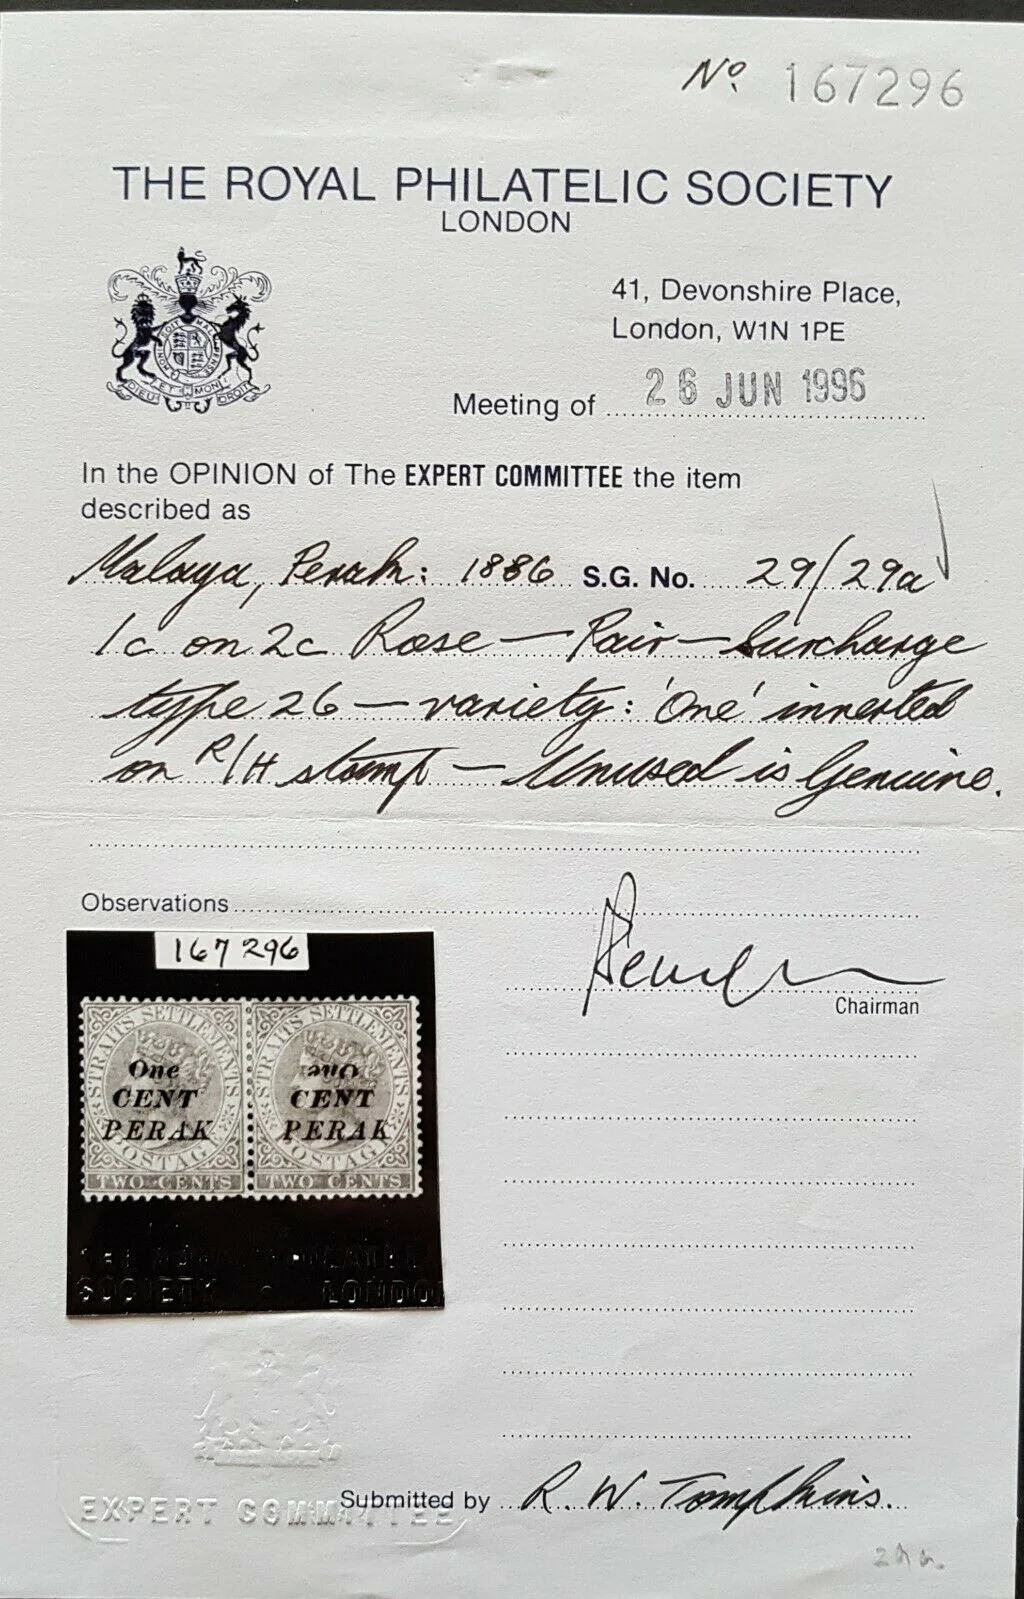 No. 167296
THE ROYAL PHILATELIC SOCIETY
LONDON
41, Devonshire Place,
London, W1N 1PE
Meeting of 26 JUN 1996
In the OPINION of The EXPERT COMMITTEE the item
described as
Malaya, Perak: 1886 S.G. No. 29/29a
1c on 2c Rose — Pair — Surcharge
type 26 — variety: 'One' inverted
on R/H stamp — Unused is Genuine.
Observations
Chairman
167296
STRAITS SETTLEMENTS STRAITS SETTLEMENTS
One One
CENT CENT
PERAK PERAK
POSTAGE POSTAGE
TWO CENTS TWO CENTS
SOCIETY LONDON
EXPERT COMMITTEE
Submitted by R. W. Tompkins.